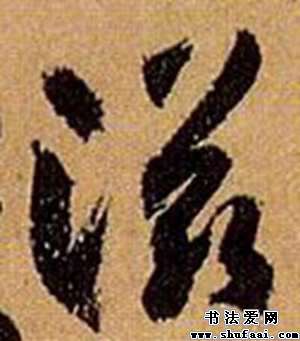 滋
书法爱网
www.shufaai.com